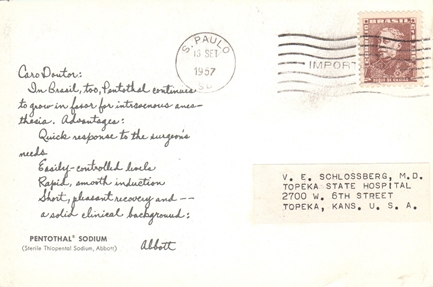 S. PAULO
13 SET
1957
BRASIL
IMPOR
Caro Doutor:
In Brasil, too, Pentothal continues
to grow in favor for intravenous anes-
thesia. Advantages:
Quick response to the surgeon's
needs
Easily-controlled levels
Rapid, smooth induction
Short, pleasant recovery and --
a solid clinical background:
Abbott
PENTOTHAL® SODIUM
(Sterile Thiopental Sodium, Abbott)
V. E. SCHLOSSBERG, M.D.
TOPEKA STATE HOSPITAL
2700 W. 6TH STREET
TOPEKA, KANS. U. S. A.